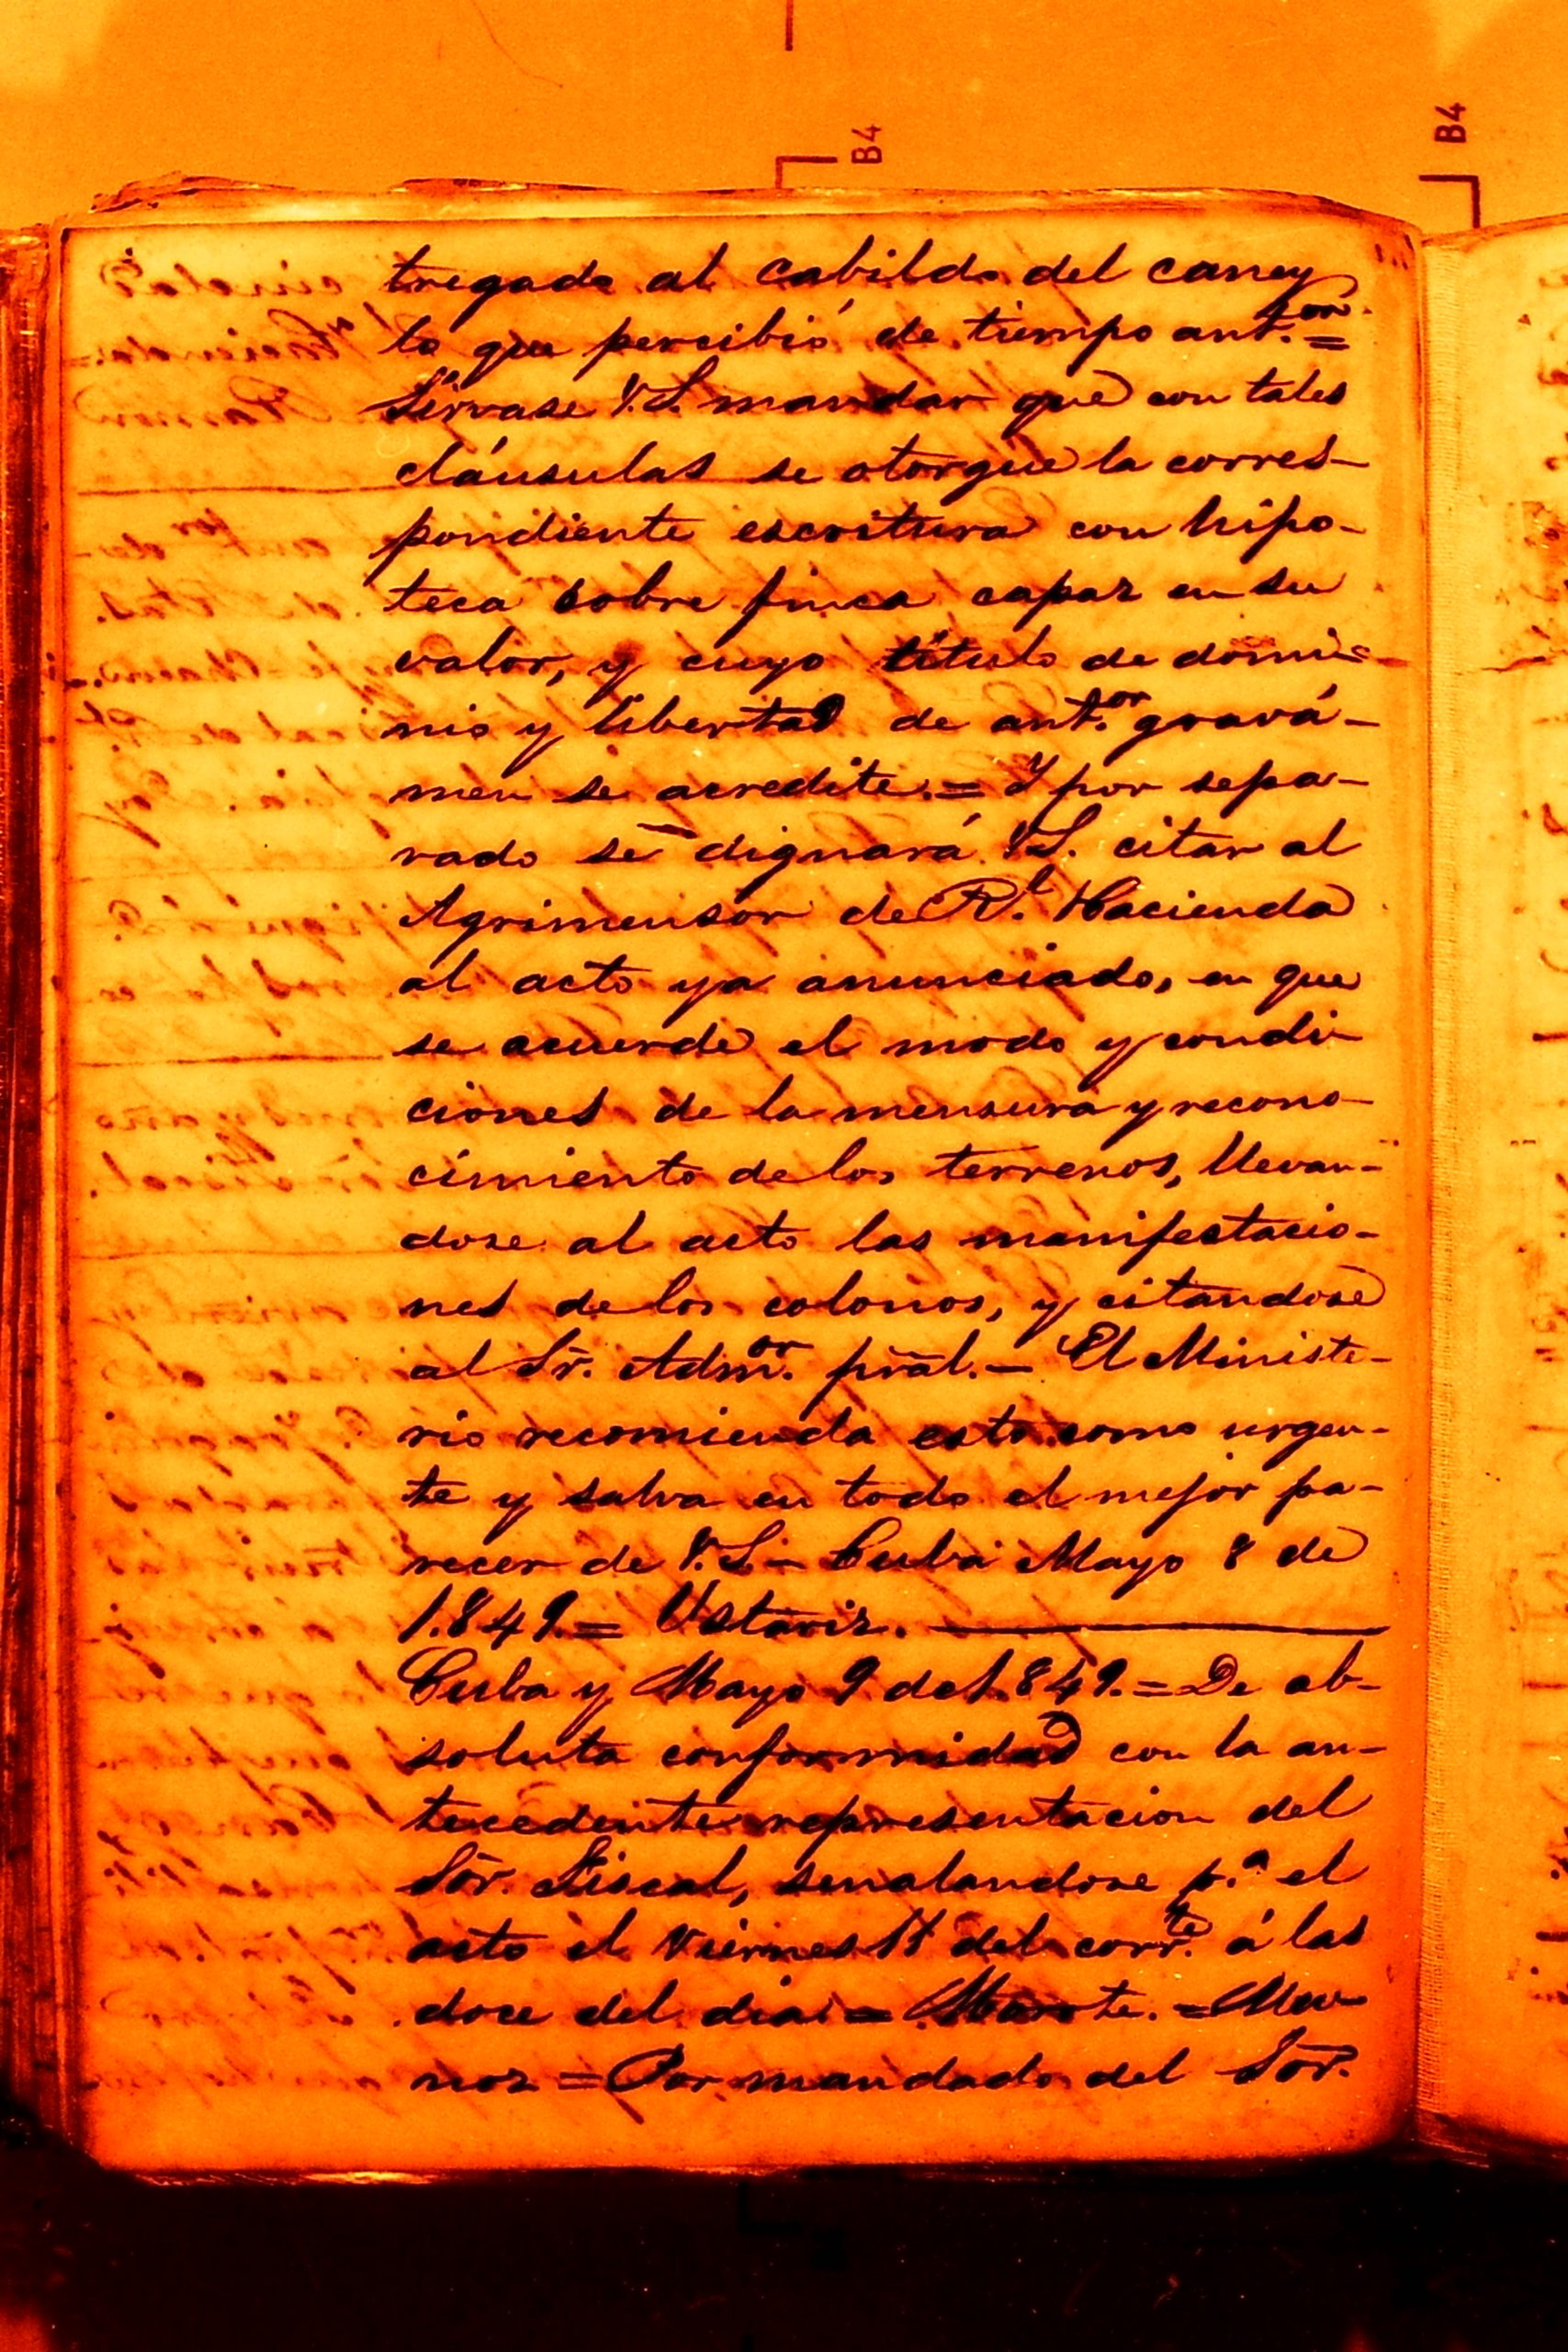 B4
B4
tregado al Cabildo del caney
lo que percibió de tiempo ant.ior =
Sírvase V.S. mandar que con tales
cláusulas se otorgue la corres-
pondiente escritura con hipo-
teca sobre finca capaz en su
valor, y cuyo título de domi-
nio y libertad de ant.or gravá-
men se acredite. = Y por sepa-
rado se dignará V.S. citar al
Agrimensor de R.l Hacienda
al acto ya anunciado, en que
se acuerde el modo y condi-
ciones de la mensura y recono-
cimiento de los terrenos, llevan-
dose al acto las manifestacio-
nes de los colonos, y citandose
al Sr. Adm.or pral. - El Ministe-
rio recomienda esto como urgen-
te y salva en todo el mejor pa-
recer de V.S. - Cuba Mayo 8 de
1.849. = Ustariz.
Cuba y Mayo 9 de 1.849. = De ab-
soluta conformidad con la an-
tecedente representacion del
Sor. Fiscal, senalandose p.a el
acto el Viernes 11 del corr.te á las
doce del dia. = Marote. = Mu-
noz = Por mandado del Sor.